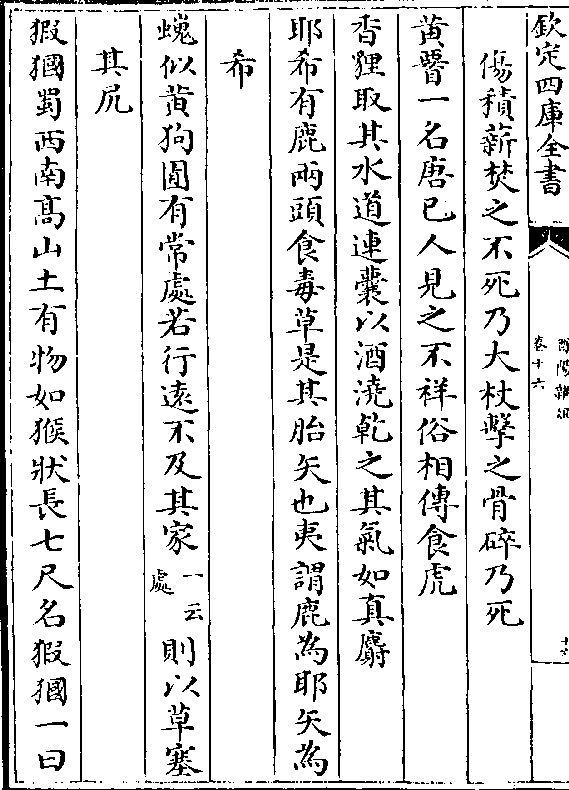 欽定四庫全書
酉陽雜俎
卷十六
傷積薪焚之不死乃大杖擊之骨碎乃死
黄䝞一名唐已人見之不祥俗相傳食虎
香狸取其水道連囊以酒澆乾之其氣如真麝
耶希有鹿兩頭食毒草是其胎矢也夷謂鹿為耶矢為
希
䗥似黄狗圊有常處若行遠不及其家一云處則以草塞
其尻
猳㺉蜀西南髙山土有物如猴狀長七尺名猳㺉一曰